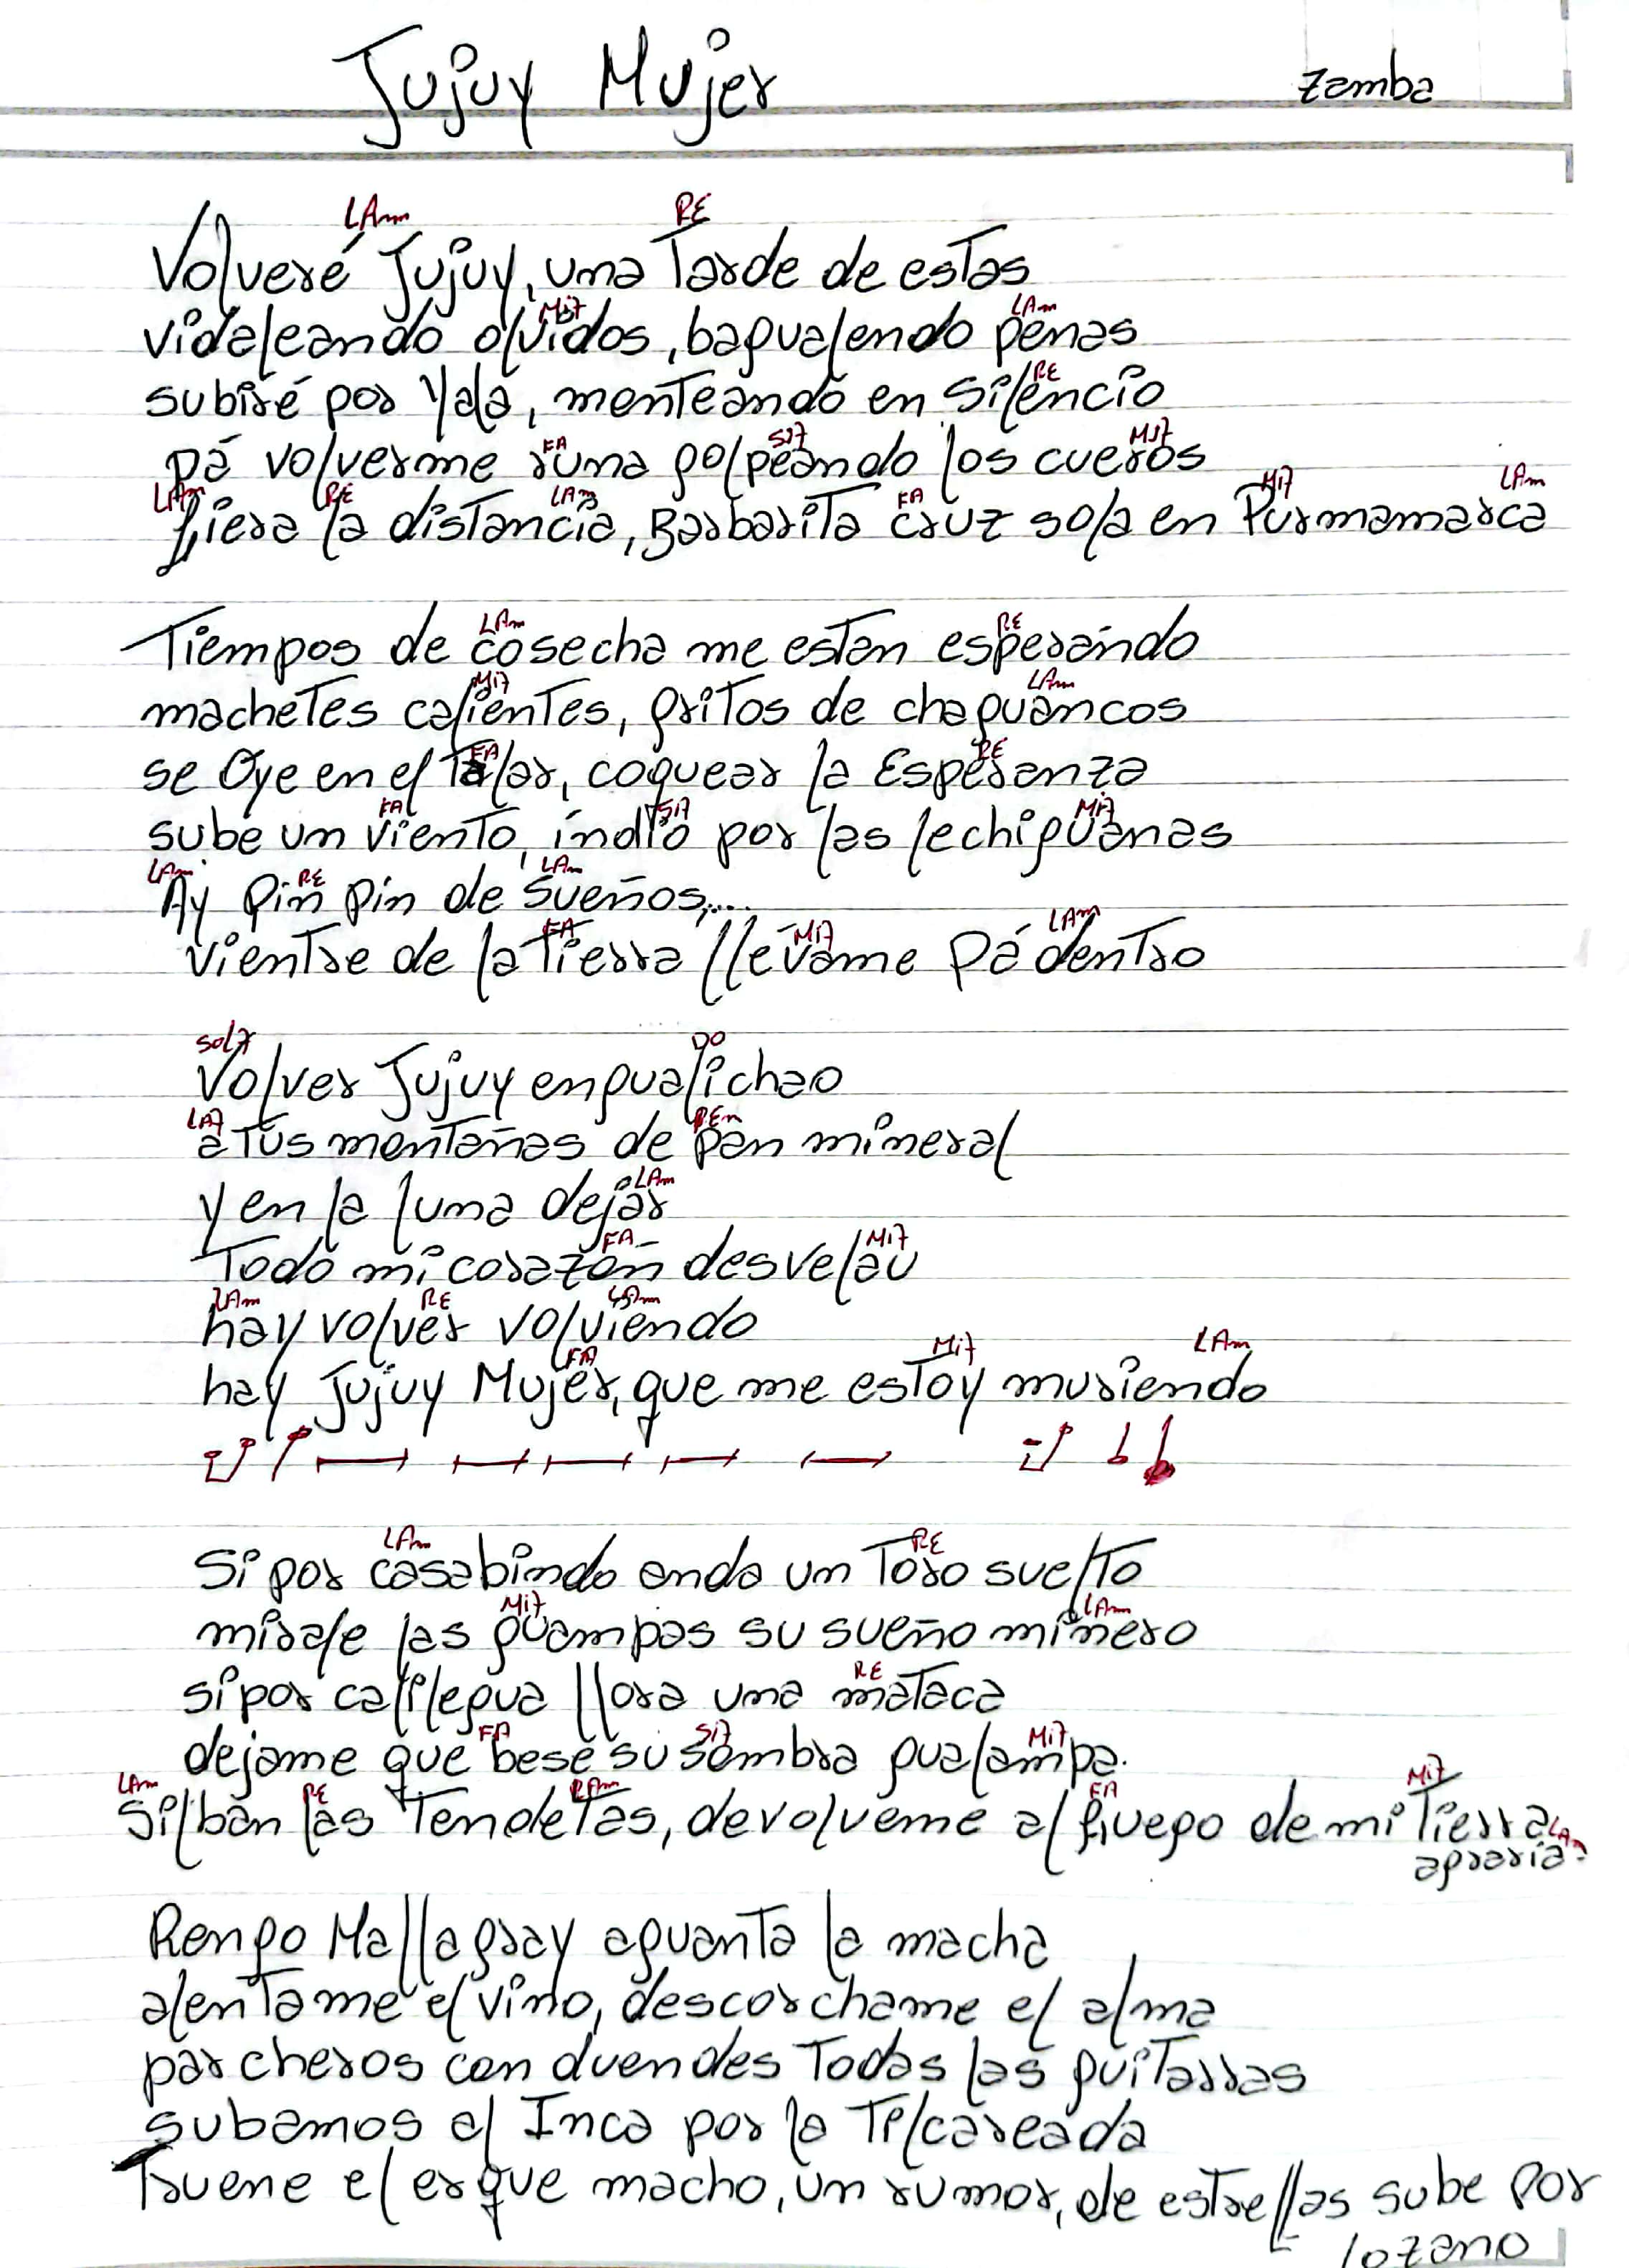 Jujuy Mujer
Zamba
LAm RE
Volveré Jujuy, una Tarde de estas
Mi7 LAm
vidaleando olvidos, bagualendo penas
RE
subiré por Yala, menteando en silencio
FA SI7 MI7
pá volverme runa golpeando los cueros
LAm RE LAm FA Mi7 LAm
fiera la distancia, Barbarita Cruz sola en Purmamarca
LAm RE
Tiempos de cosecha me estan esperando
Mi7 LAm
machetes calientes, gritos de chaguancos
FA RE
se Oye en el Talar, coquear la Esperanza
FA SI7 Mi7
sube un viento, indio por las lechiguanas
LAm RE LAm
Ay Pin pin de sueños,...
FA Mi7 LAm
vientre de la Tierra llevame Pá dentro
Sol7 DO
Volver Jujuy engualichao
LA7 REm
a Tus montañas de pan mineral
LAm
y en la luna dejar
FA Mi7
Todo mi corazón desvelau
LAm RE LAm
hay volver volviendo
FA Mi7 LAm
hay Jujuy Mujer, que me estoy muriendo
LAm RE
Si por casabindo anda un Toro suelto
Mi7 LAm
mirale las guampas su sueño minero
RE
si por calilegua llora una mataca
FA SI7 Mi7
dejame que bese su sombra gualampa.
LAm RE LAm FA Mi7
Silban las Tendetas, devolveme al fuego de mi Tierra
LAm
agraria.
Rengo Mallagray aguanta la macha
alentame el vino, descorchame el alma
parcheros con duendes Todas las guitarras
subamos al Inca por la Tilcareada
Truene el erque macho, un rumor, de estrellas sube por
lozano